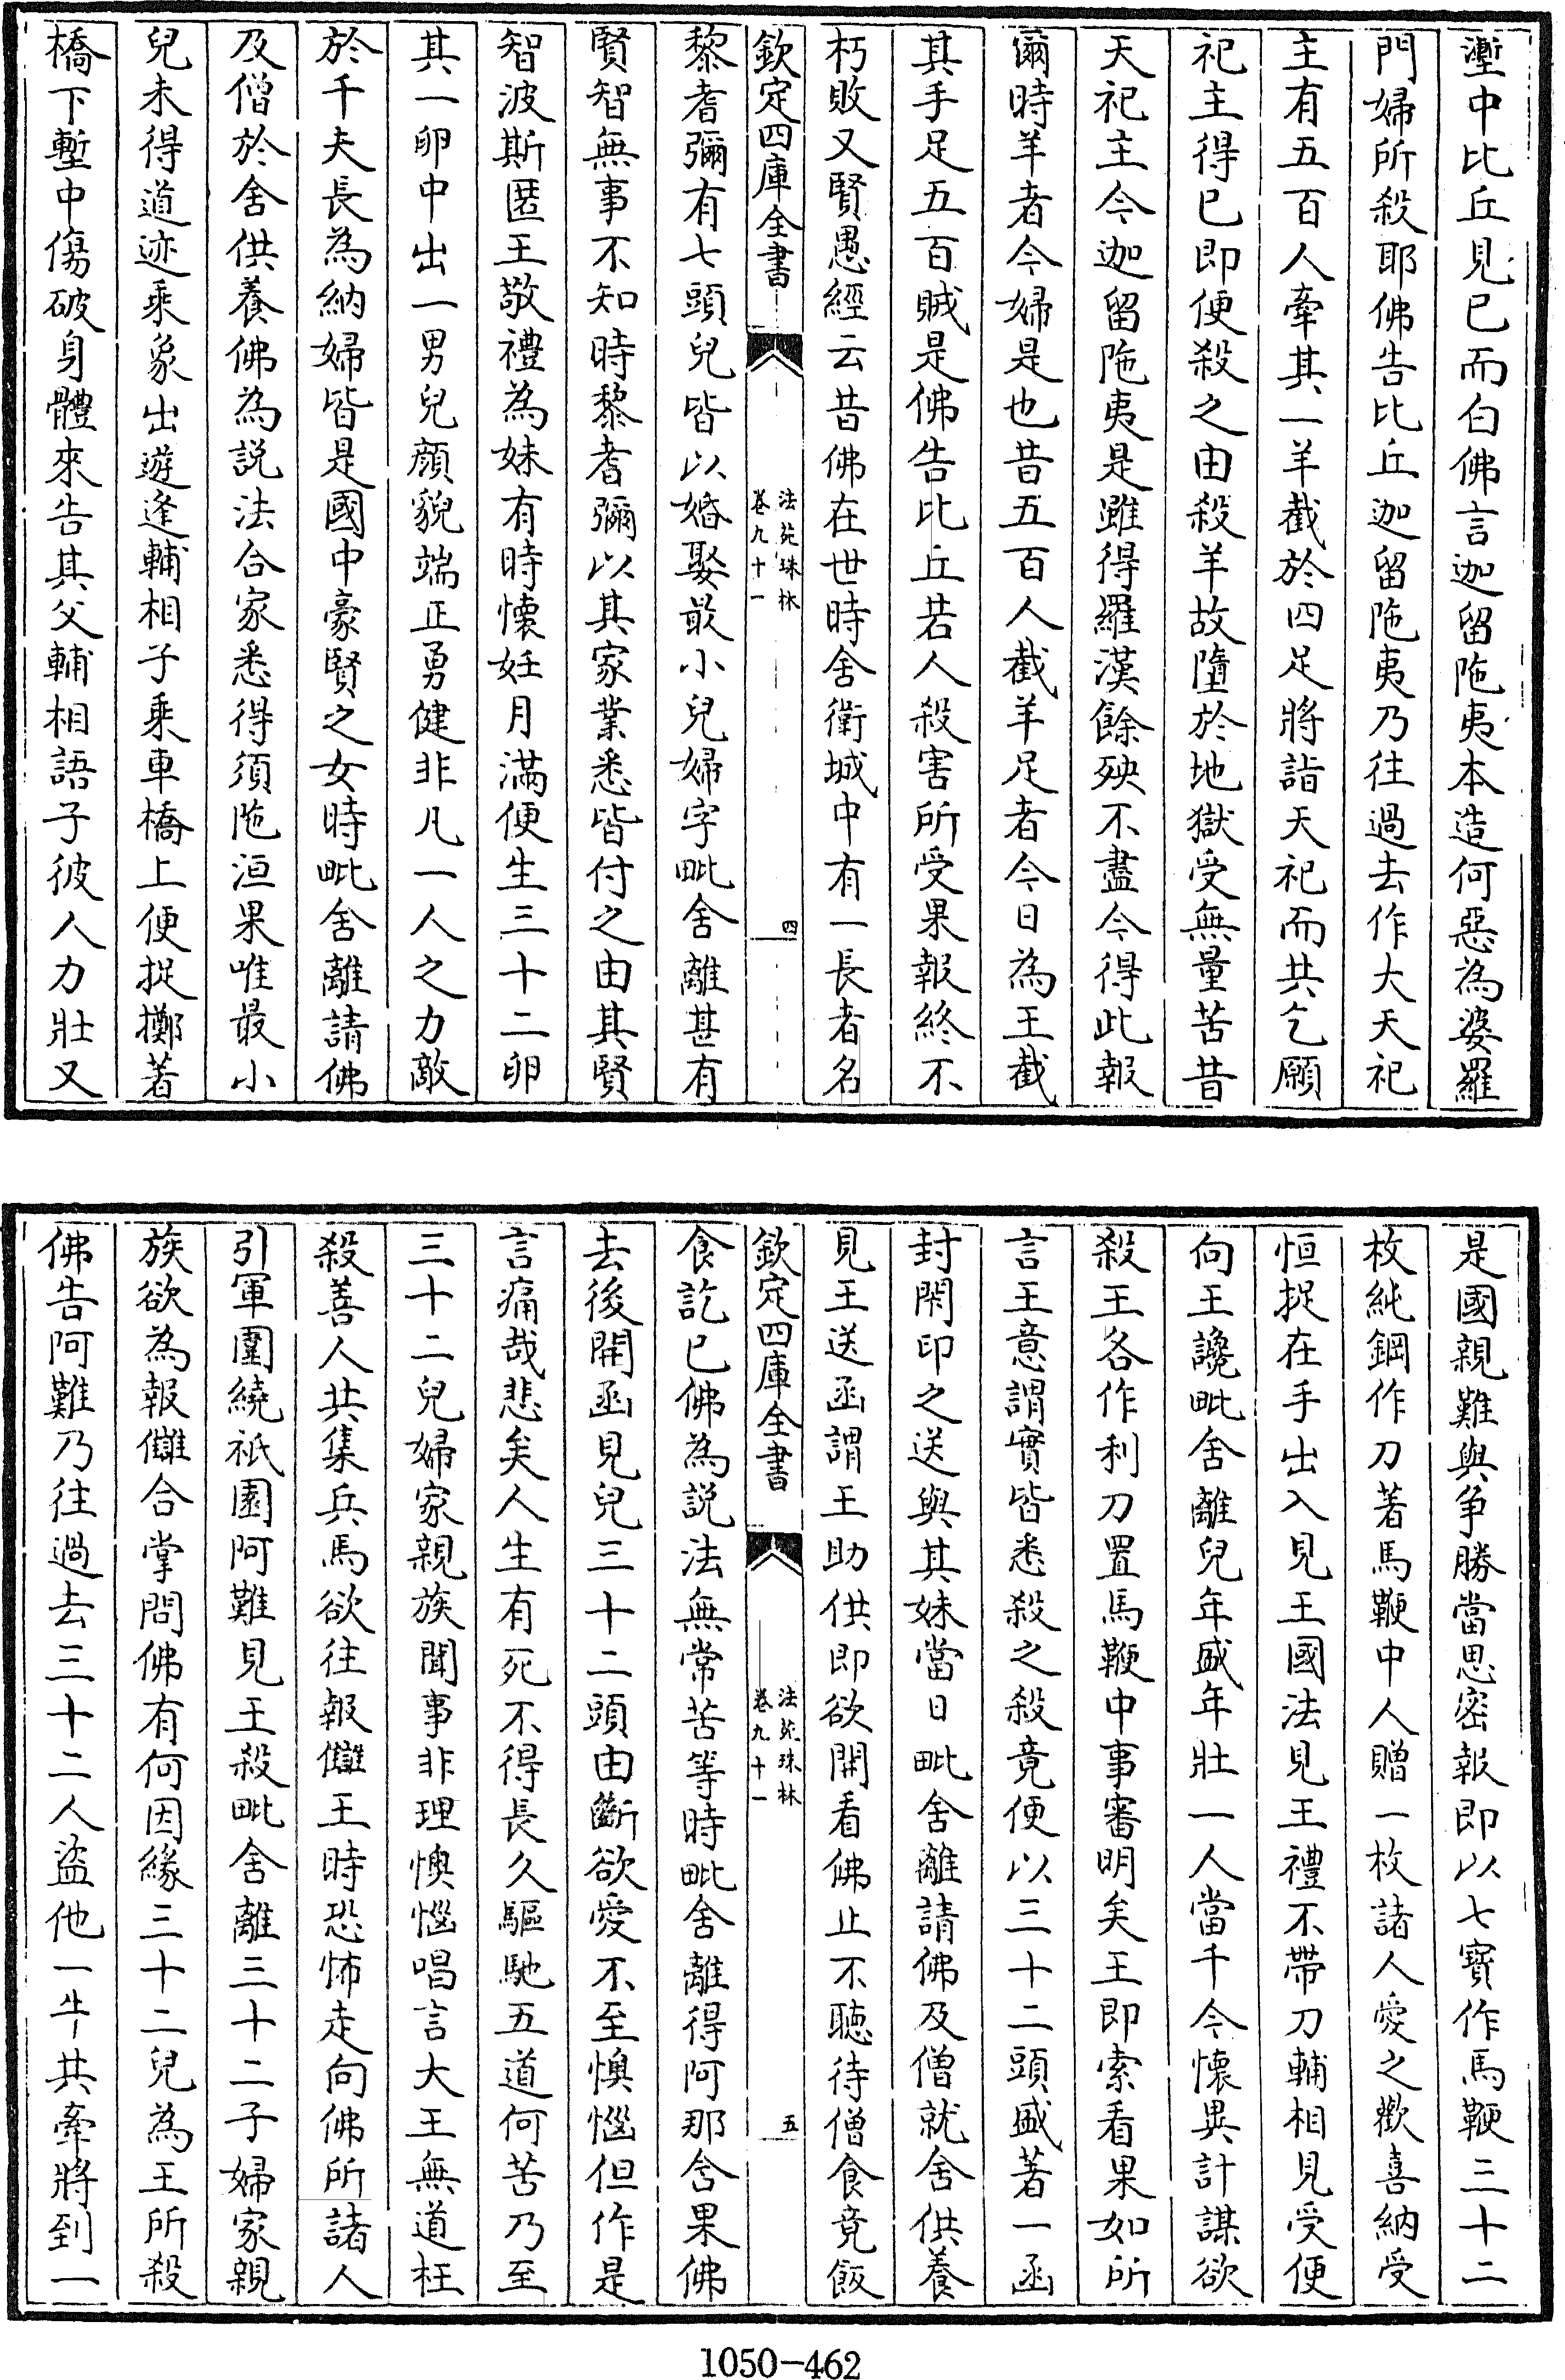 壍中比丘見已而白佛言迦留陁夷本造何惡為婆羅
門婦所殺耶佛告比丘迦留陁夷乃往過去作大天祀
主有五百人牽其一羊截於四足將詣天祀而共乞願
祀主得已即便殺之由殺羊故墮於地獄受無量苦昔
天祀主今迦留陁夷是雖得羅漢餘殃不盡今得此報
爾時羊者今婦是也昔五百人截羊足者今日為王截
其手足五百賊是佛告比丘若人殺害所受果報終不
朽敗又賢愚經云昔佛在世時舍衛城中有一長者名
欽定四庫全書
法苑珠林
卷九十一
四
黎耆彌有七頭兒皆以婚娶最小兒婦字毗舍離甚有
賢智無事不知時黎耆彌以其家業悉皆付之由其賢
智波斯匿王敬禮為妹有時懷妊月滿便生三十二卵
其一卵中出一男兒顏貌端正勇健非凡一人之力敵
於千夫長為納婦皆是國中豪賢之女時毗舍離請佛
及僧於舍供養佛為説法合家悉得須陁洹果唯最小
兒未得道迹乘象出遊逢輔相子乘車橋上便捉擲著
橋下塹中傷破身體來告其父輔相語子彼人力壯又
是國親難與爭勝當思密報即以七寳作馬鞭三十二
枚純鋼作刀著馬鞭中人贈一枚諸人愛之歡喜納受
恒捉在手出入見王國法見王禮不帶刀輔相見受便
向王讒毗舍離兒年盛年壯一人當千今懷異計謀欲
殺王各作利刀置馬鞭中事審明矣王即索看果如所
言王意謂實皆悉殺之殺竟便以三十二頭盛著一函
封閉印之送與其妹當日毗舍離請佛及僧就舍供養
見王送函謂王助供即欲開看佛止不聽待僧食竟飯
欽定四庫全書
法苑珠林
卷九十一
五
食訖已佛為説法無常苦等時毗舍離得阿那含果佛
去後開函見兒三十二頭由斷欲愛不至懊惱但作是
言痛哉悲矣人生有死不得長久驅馳五道何苦乃至
三十二兒婦家親族聞事非理懊惱唱言大王無道枉
殺善人共集兵馬欲往報讎王時恐怖走向佛所諸人
引軍圍繞祇園阿難見王殺毗舍離三十二子婦家親
族欲為報讎合掌問佛有何因緣三十二兒為王所殺
佛告阿難乃往過去三十二人盜他一牛共牽將到一
1050-462